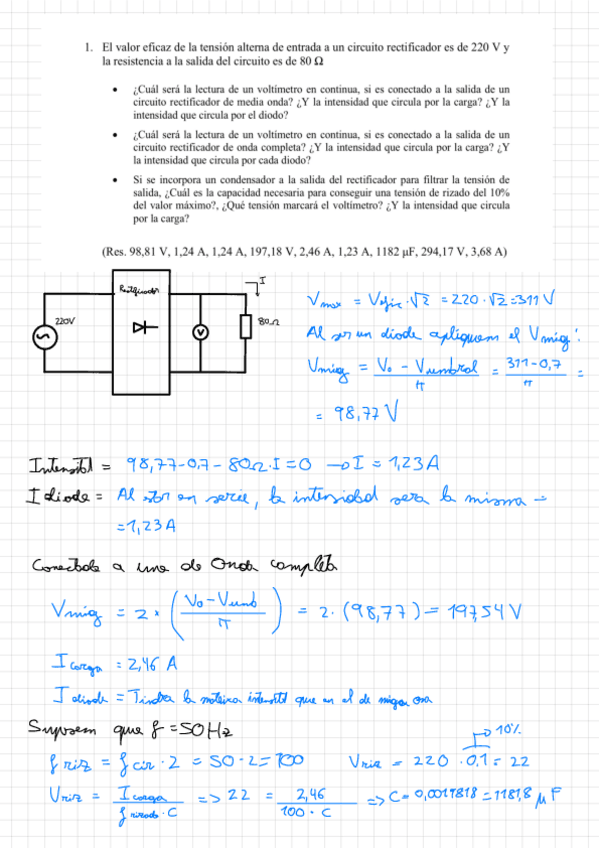 1. El valor eficaz de la tensión alterna de entrada a un circuito rectificador es de 220 V y
la resistencia a la salida del circuito es de 80 Ω
• ¿Cuál será la lectura de un voltímetro en continua, si es conectado a la salida de un
circuito rectificador de media onda? ¿Y la intensidad que circula por la carga? ¿Y la
intensidad que circula por el diodo?
• ¿Cuál será la lectura de un voltímetro en continua, si es conectado a la salida de un
circuito rectificador de onda completa? ¿Y la intensidad que circula por la carga? ¿Y
la intensidad que circula por cada diodo?
• Si se incorpora un condensador a la salida del rectificador para filtrar la tensión de
salida, ¿Cuál es la capacidad necesaria para conseguir una tensión de rizado del 10%
del valor máximo?, ¿Qué tensión marcará el voltímetro? ¿Y la intensidad que circula
por la carga?
(Res. 98,81 V, 1,24 A, 1,24 A, 197,18 V, 2,46 A, 1,23 A, 1182 µF, 294,17 V, 3,68 A)
Rectificador
I
220V
V
80Ω
Vmax = Vefic · √2 = 220 · √2 = 311 V
Al ser un diode apliquem el Vmig:
Vmig = V₀ - Vumbral / π = 311 - 0,7 / π =
= 98,77 V
Intensitat = 98,77 - 0,7 - 80Ω · I = 0 → I = 1,23 A
I diode = Al estar en serie, la intensidad sera la misma →
= 1,23 A
Conectada a una de Onda completa
Vmig = 2 · (V₀ - Vumb / π) = 2 · (98,77) = 197,54 V
I carga = 2,46 A
I diode = Tindra la mateixa intensitat que en el de mitja ona
Suposem que f = 50 Hz
10%
f riz = f cir · 2 = 50 · 2 = 100 Vriz = 220 · 0,1 = 22
Vriz = I carga / f rizado · C => 22 = 2,46 / 100 · C => C = 0,0011818 = 1181,8 µF